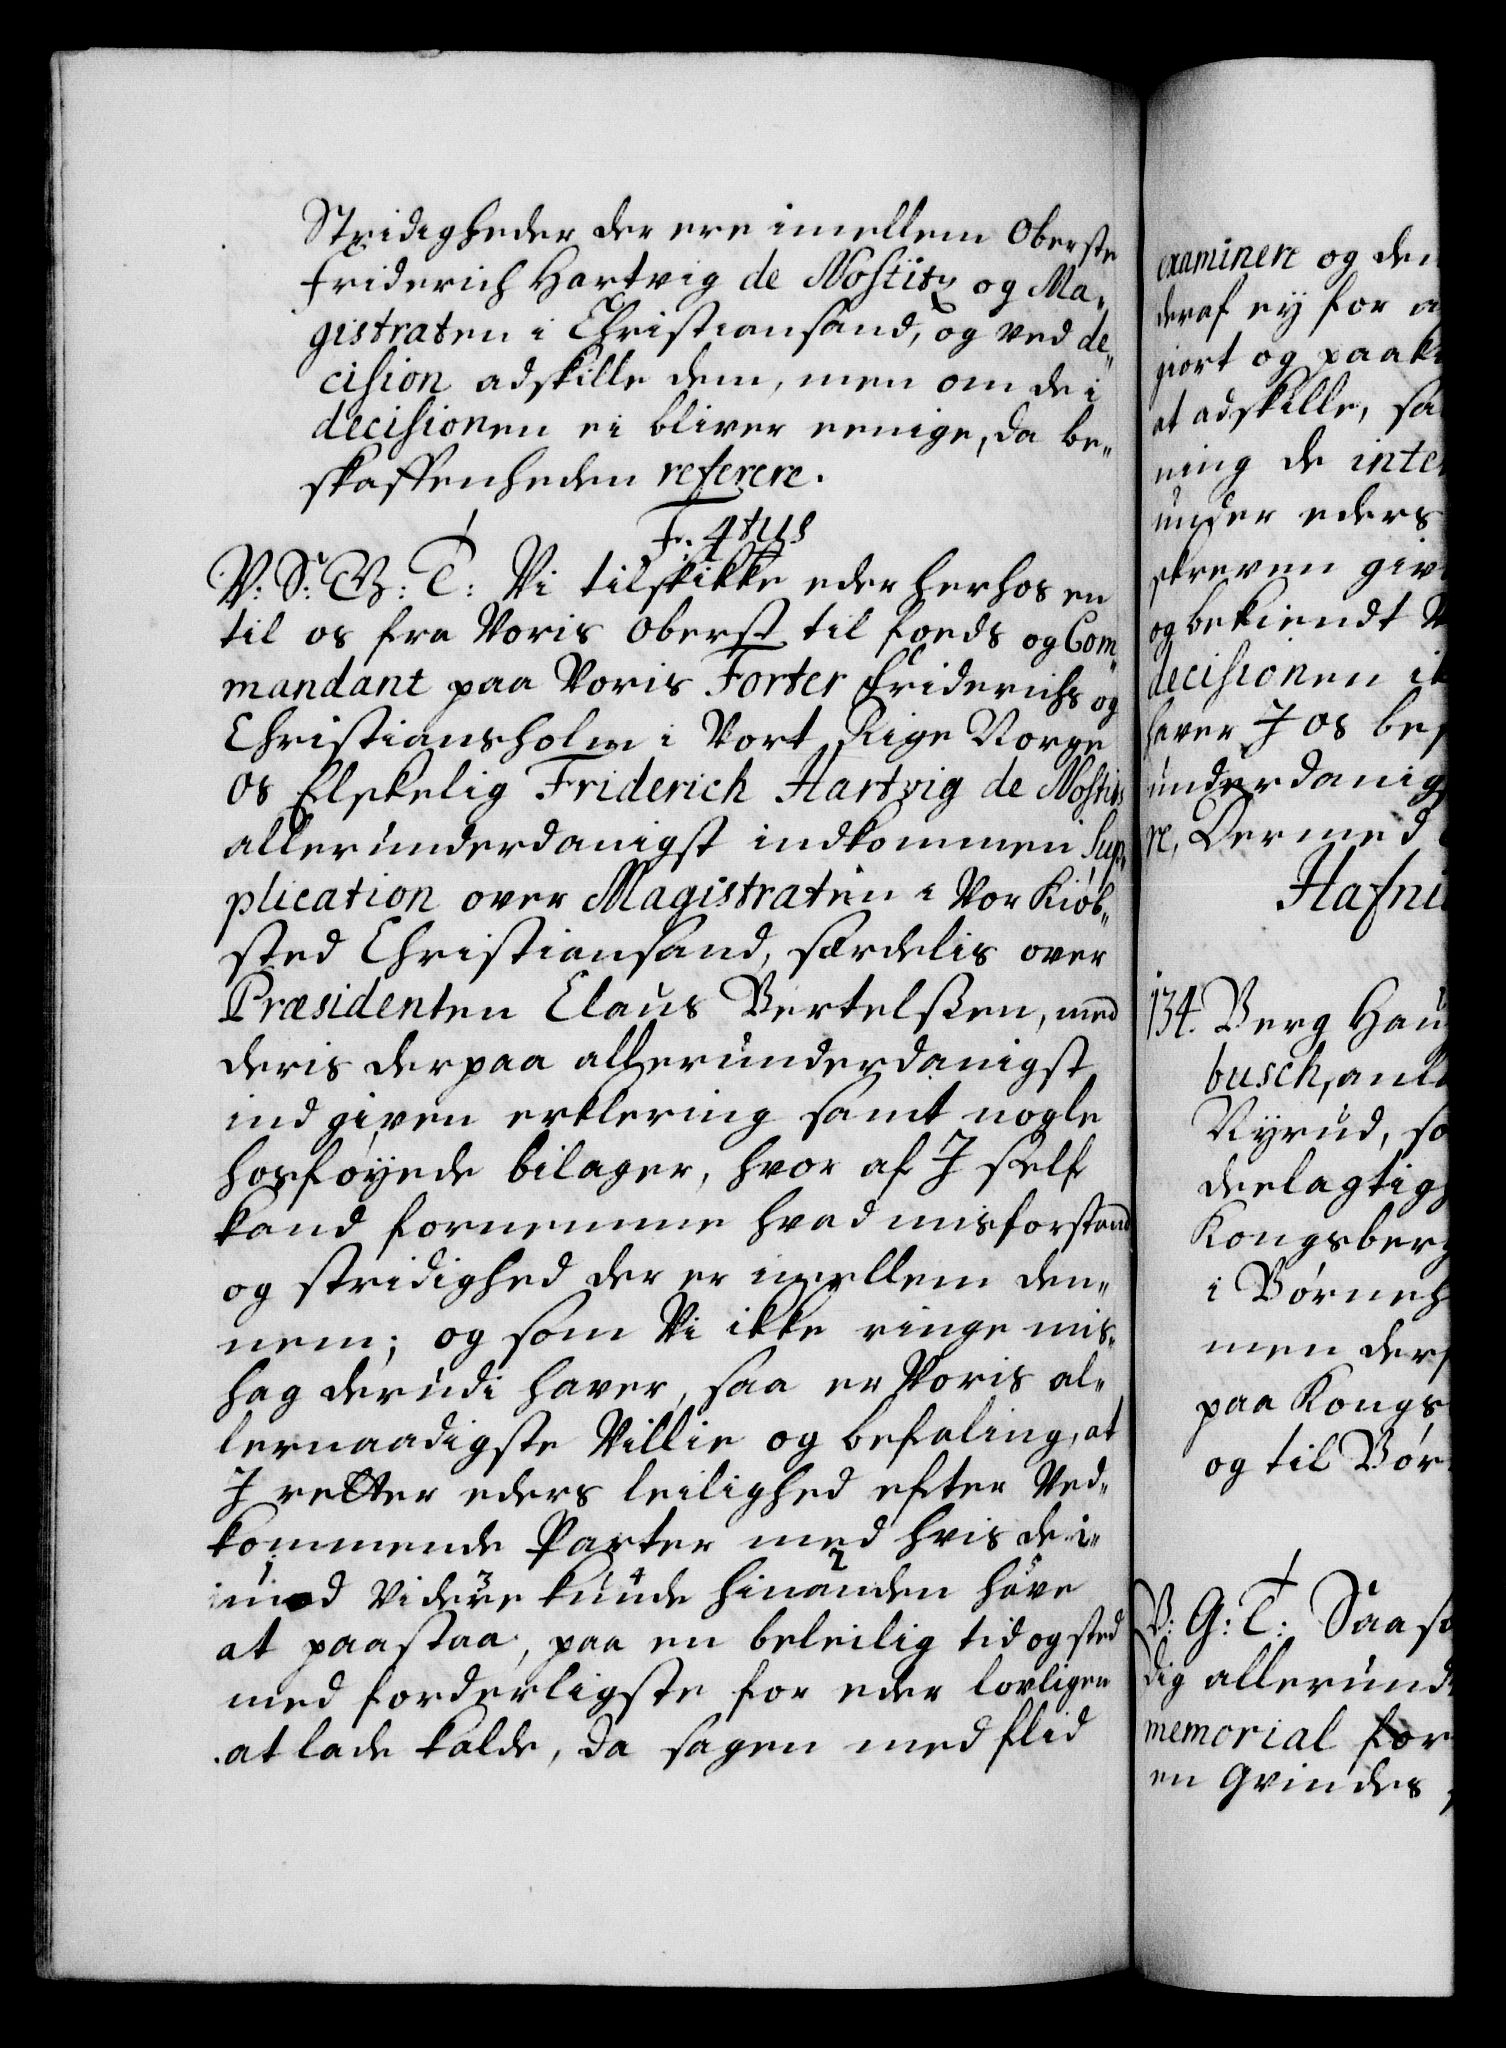 Stridigheder der ere imellem Oberste
Friderich Hartvig de Nostitz og Ma-
gistraten i Christiansand, og ved de-
cision adskille dem, men om de i
decisionen ei bliver eenige, da be-
skaffenheden referere.
F. 4tus
V: S: G: T: Vi tilskikke eder herhos en
til os fra Voris Oberst til foeds og Com-
mandant paa Voris Forter Friderichs og
Christiansholm i Vort Rige Norge
os Elskelig Friderich Hartvig de Nostits
allerunderdanigst indkommen Sup-
plication over Magistraten i Vor Kiøb-
sted Christiansand, særdelis over
Præsidenten Claus Bertelssen, med
deris derpaa allerunderdanigst
indgiven erklering samt nogle
hosføyede bilager, hvor af I self
kand fornemme hvad misforstand
og stridighed der er imellem den-
nem; og som Vi ikke ringe mis-
hag derudi haver, saa er Voris al-
lernaadigste Villie og befaling, at
I retter eders leilighed efter Ved-
kommende Parter med hvis de i-
1 2
imod 3 videre 4 kunde hinanden 5 have
at paastaa, paa en beleilig tid og sted
med forderligste for eder lovligen
at lade kalde, da sagen med flid
examinere og den
deraf ey for a
giort og paak
at adskille, sa
ning de inte
under eders
skreven giv
og bekiendt V
decisionen ik
haver I os be
underdanig
re, Dermed
Hafni
134. Berg Hau
busch, anl
Nyrud, so
deelagtig
Kongsberg
i Børneh
men der
paa Kongs
og til Bør
V: G: T: Saa so
dig allerund
memorial for
en Qvindes